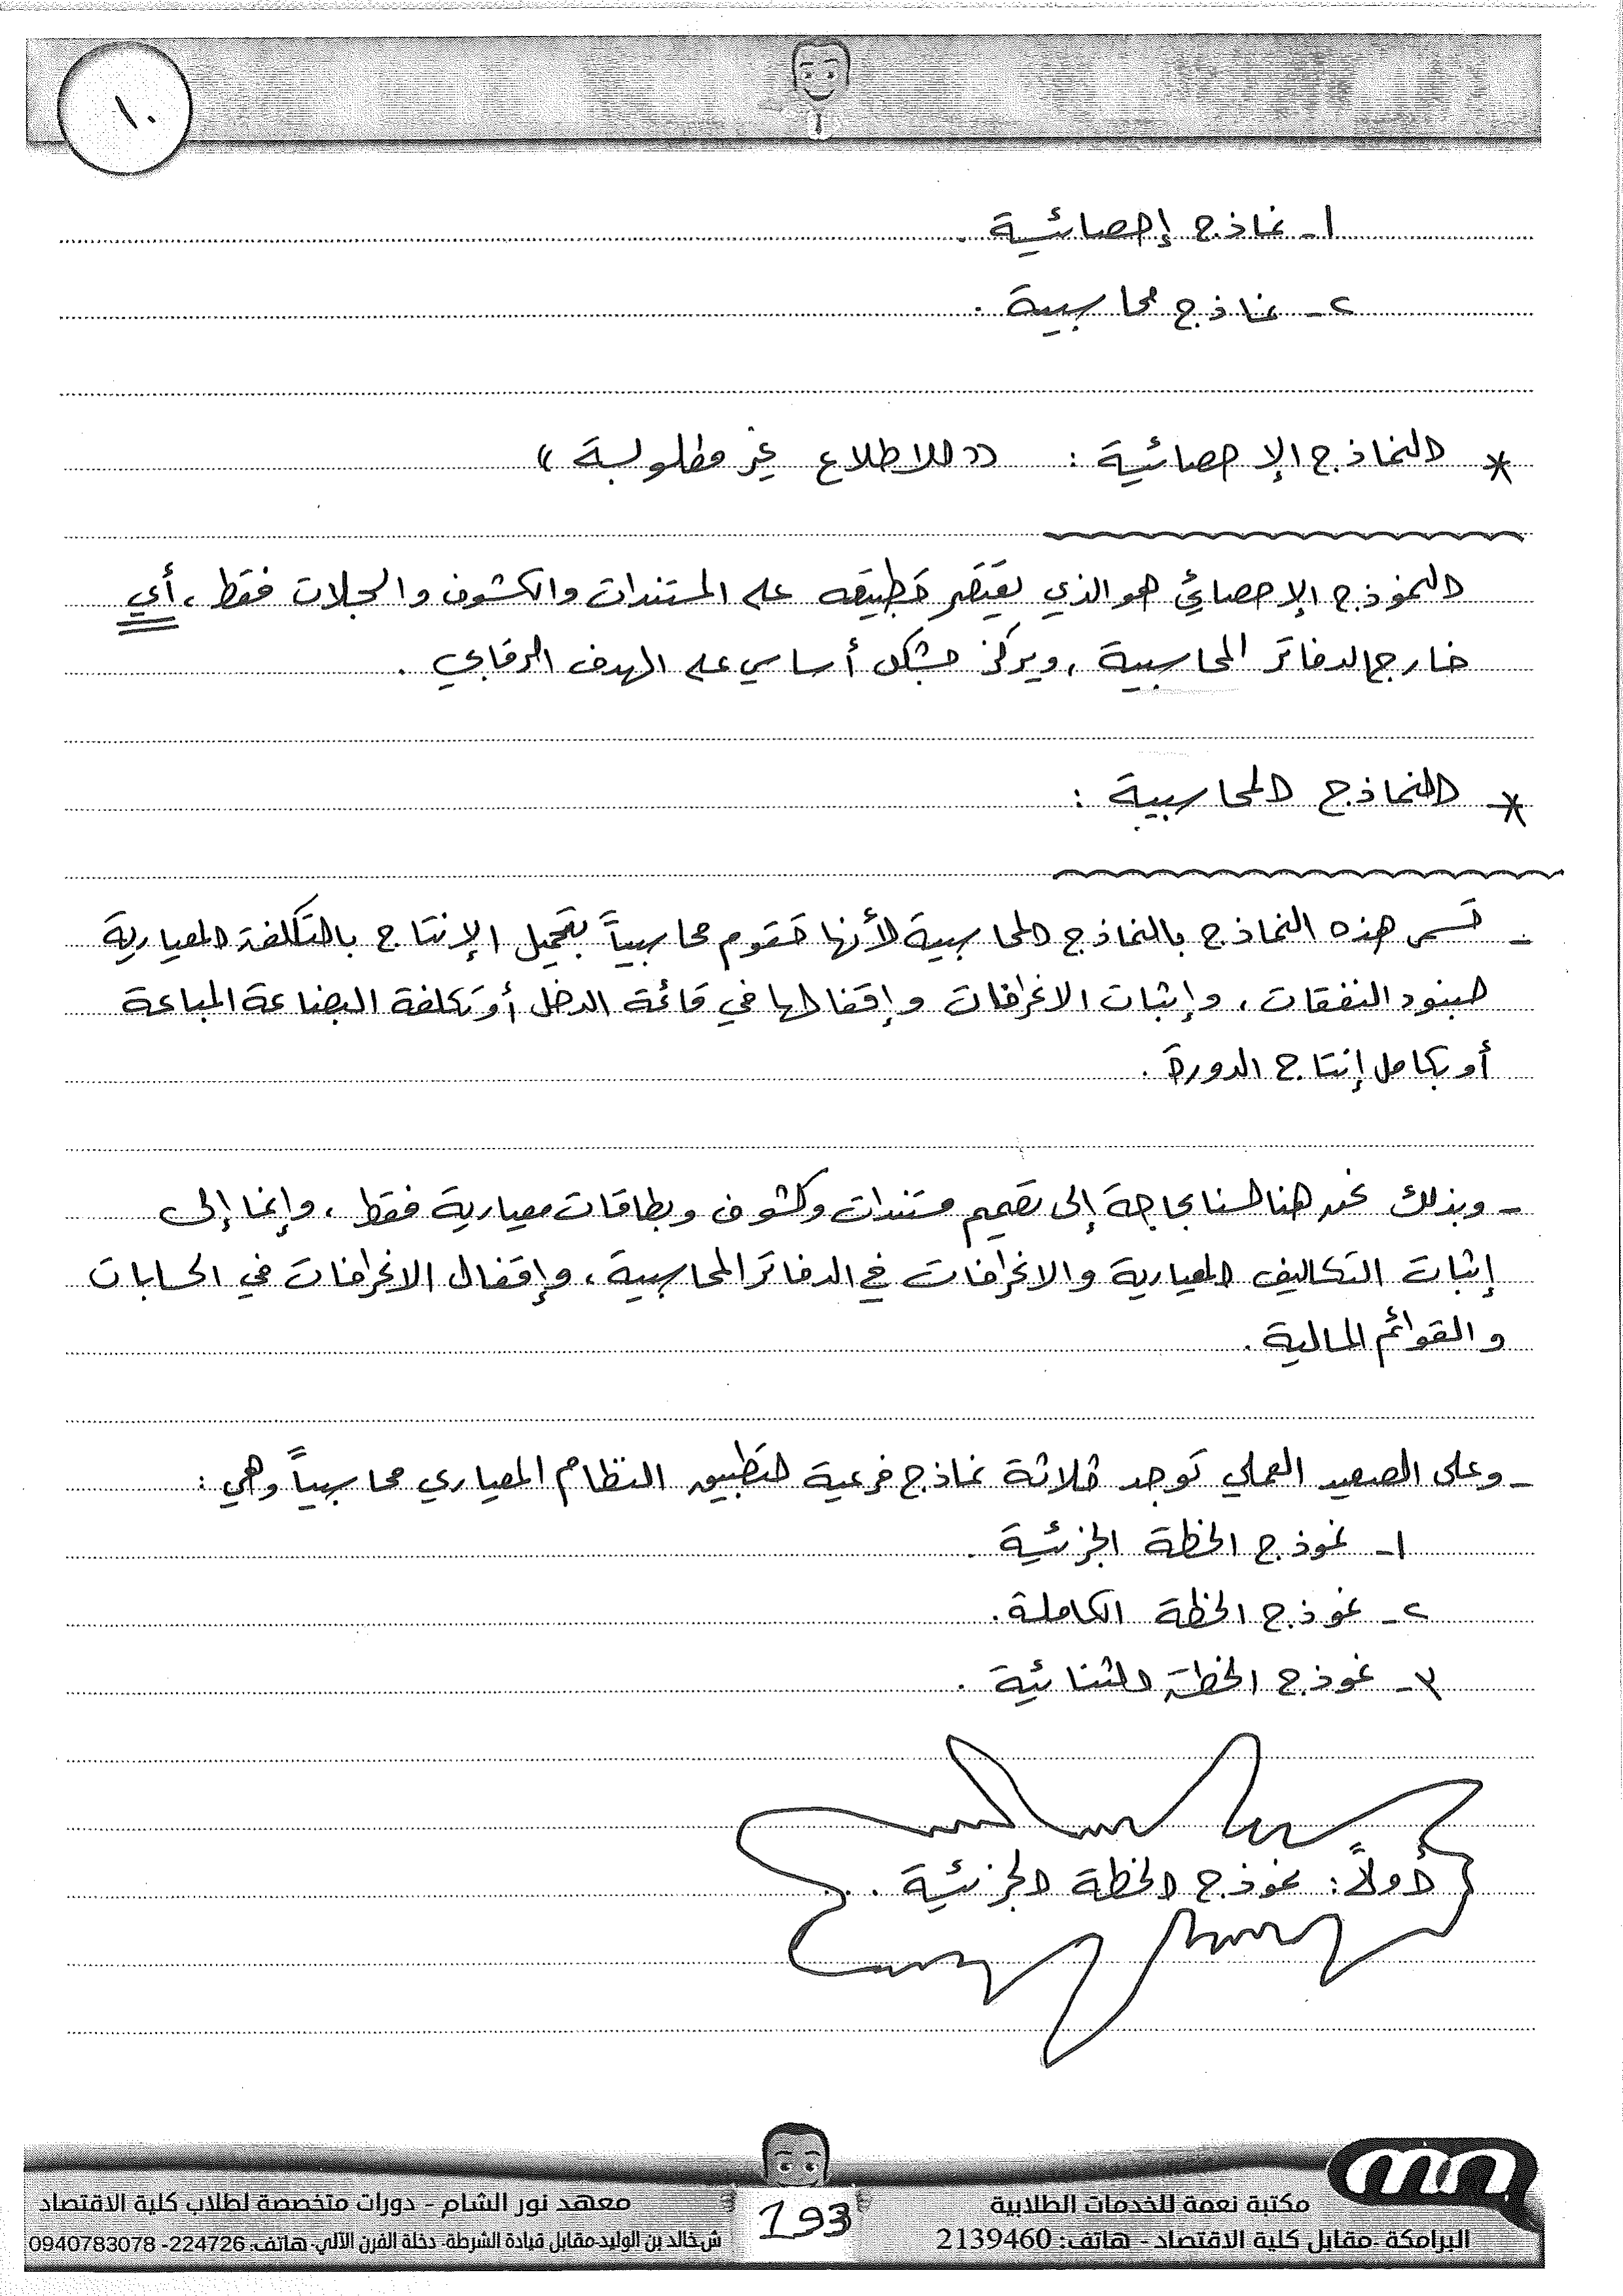 ١٠
١- نماذج إحصائية .
٢- نماذج محاسبية .
* النماذج الإحصائية : (( للاطلاع غير مطلوبة ))
النموذج الإحصائي هو الذي يقتصر تطبيقه على المستندات والكشوف والسجلات فقط ، أي
خارج الدفاتر المحاسبية ، ويركز بشكل أساسي على الهدف الرقابي .
* النماذج المحاسبية :
- تسمى هذه النماذج بالنماذج المحاسبية لأنها تقوم محاسبياً بتحميل الإنتاج بالتكلفة المعيارية
لبنود النفقات ، وإثبات الانحرافات وإقفالها في قائمة الدخل أو تكلفة البضاعة المباعة
أو بكامل إنتاج الدورة .
- وبذلك نحن هنا لسنا بحاجة إلى تصميم مستندات وكشوف وبطاقات معيارية فقط ، وإنما إلى
إثبات التكاليف المعيارية والانحرافات في الدفاتر المحاسبية ، وإقفال الانحرافات في الحسابات
والقوائم المالية .
- وعلى الصعيد العملي توجد ثلاثة نماذج فرعية لتطبيق النظام المعياري محاسبياً وهي :
١- نموذج الخطة الجزئية .
٢- نموذج الخطة الكاملة .
٣- نموذج الخطة الثنائية .
أولاً : نموذج الخطة الجزئية . .
مكتبة نعمة للخدمات الطلابية
البرامكة -مقابل كلية الاقتصاد - هاتف: 2139460
193
معهد نور الشام - دورات متخصصة لطلاب كلية الاقتصاد
ش خالد بن الوليد-مقابل قيادة الشرطة- دخلة الفرن الآلي- هاتف: 224726- 0940783078